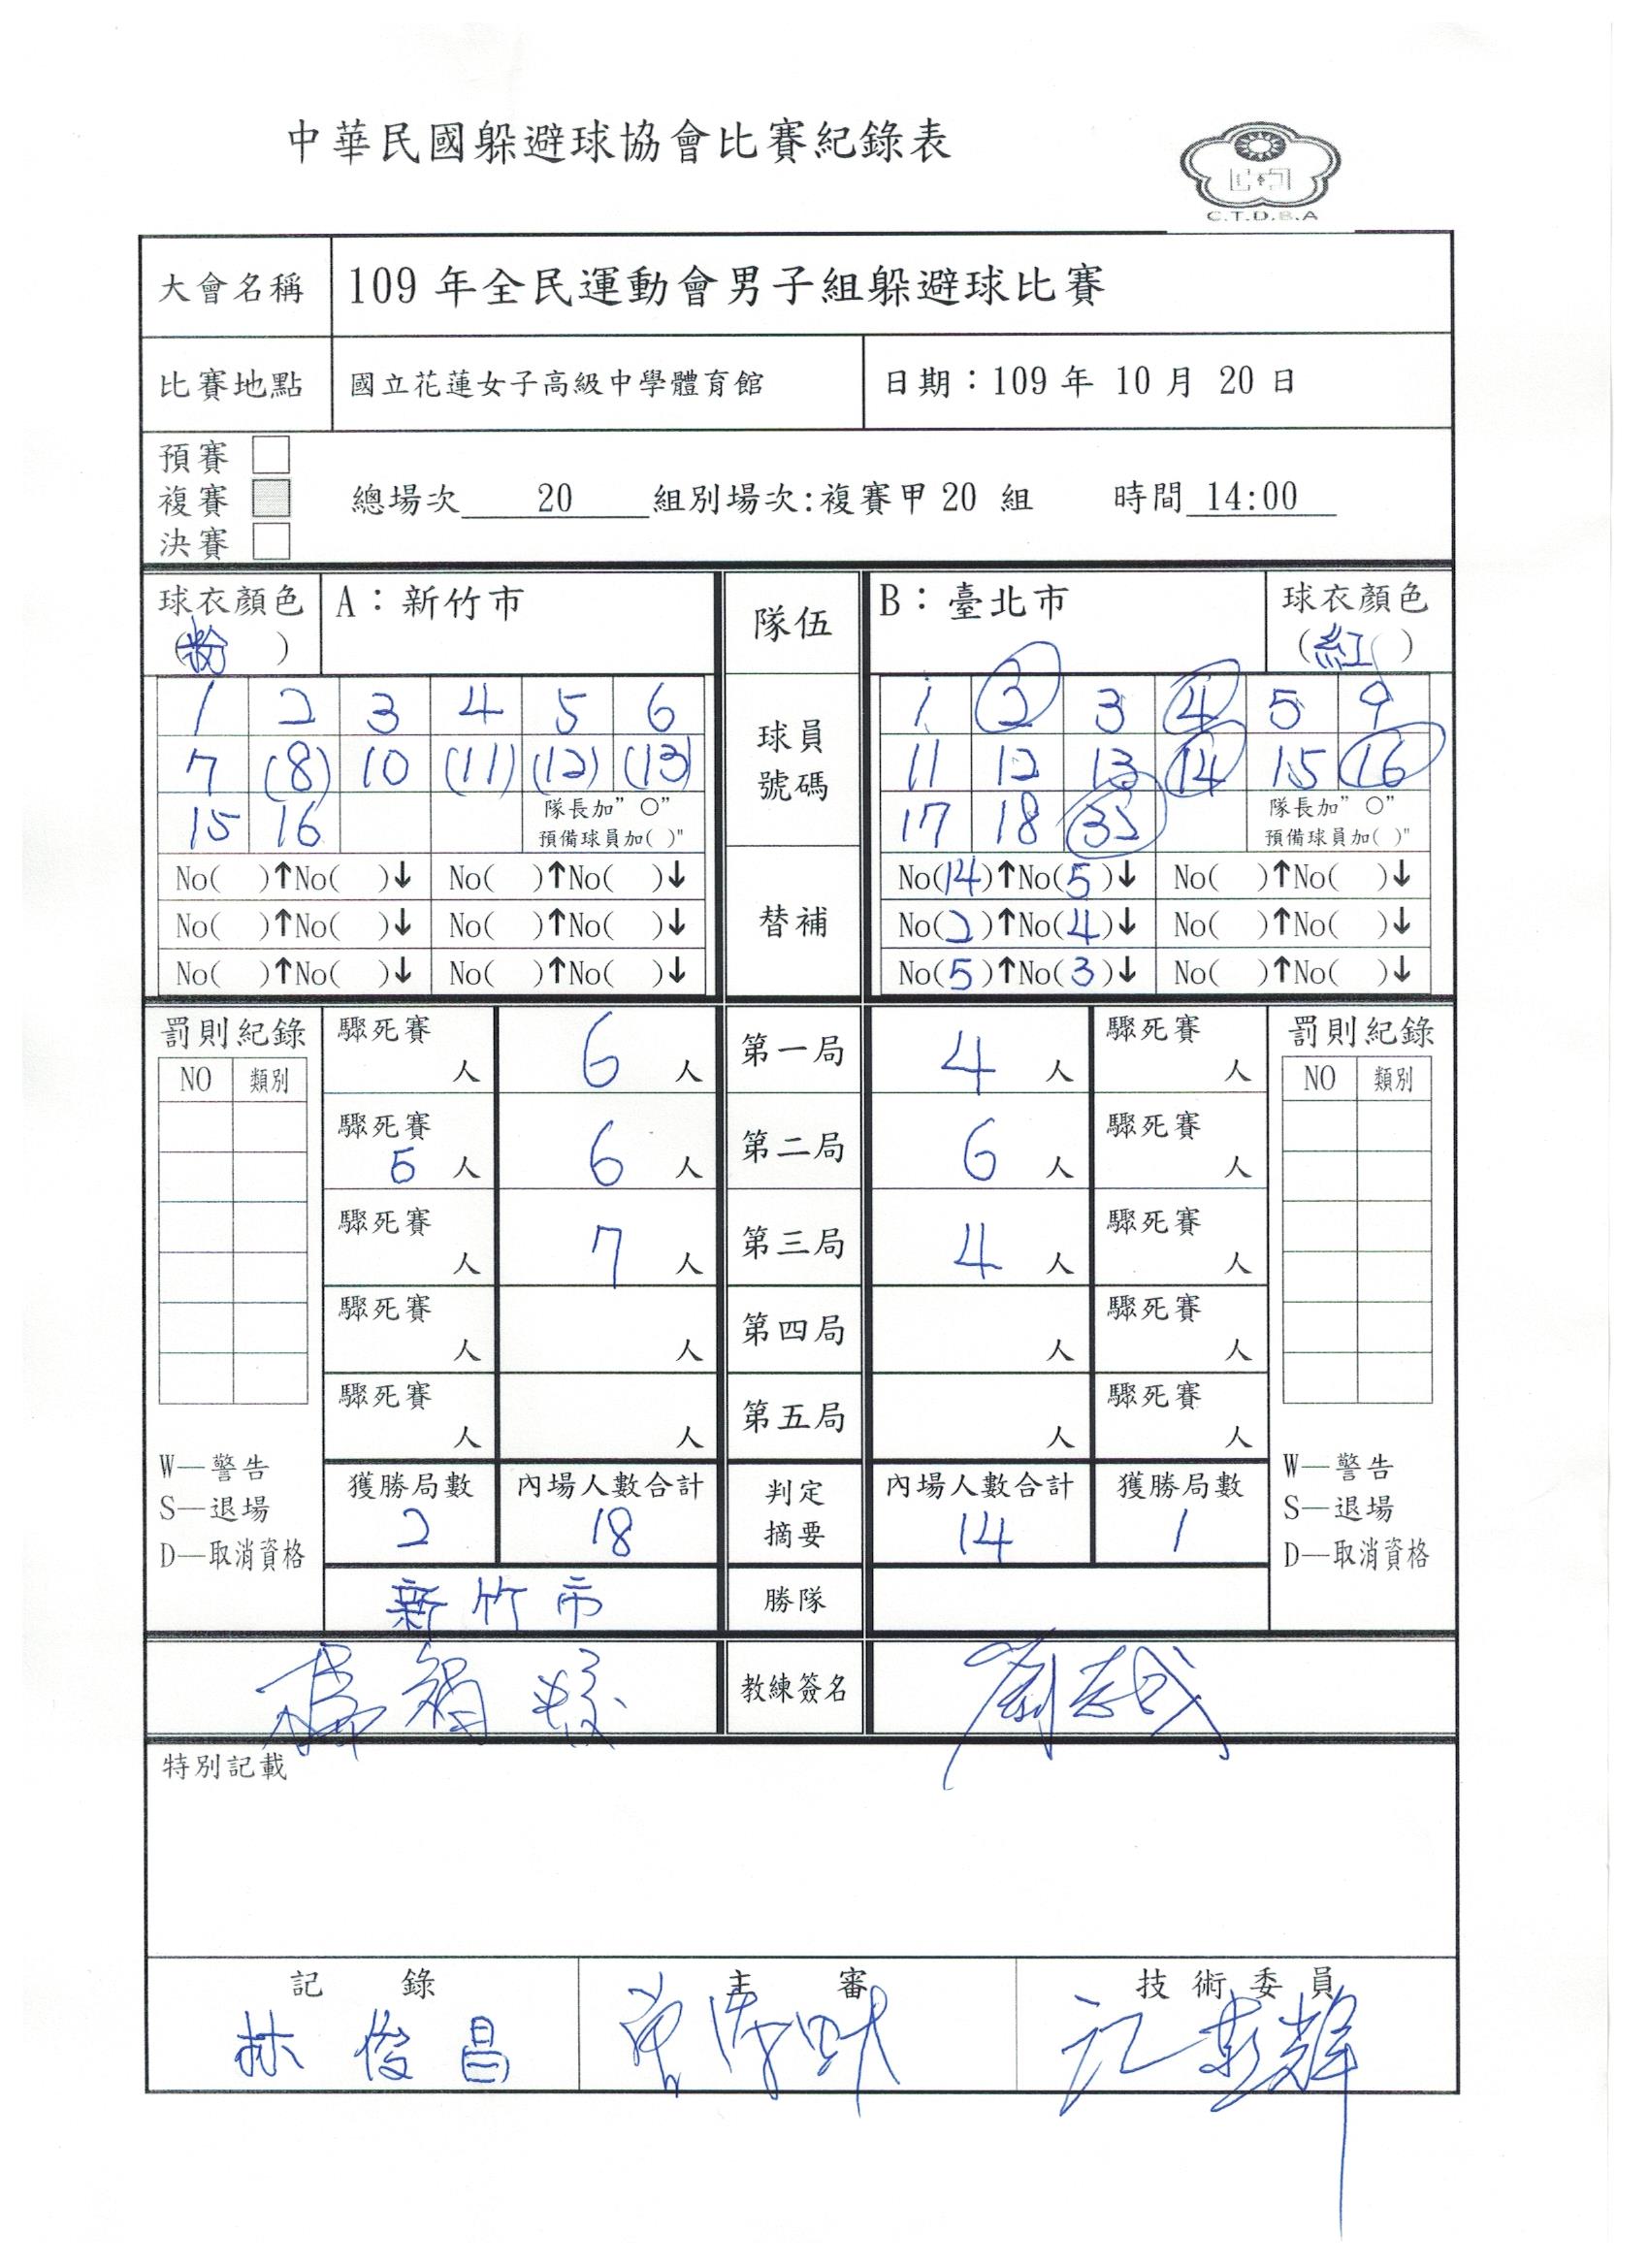 中華民國躲避球協會比賽紀錄表
C.T.D.B.A
大會名稱 109 年全民運動會男子組躲避球比賽
比賽地點 國立花蓮女子高級中學體育館 日期：109 年 10 月 20 日
預賽
複賽 總場次 20 組別場次:複賽甲 20 組 時間 14:00
決賽
球衣顏色 A：新竹市 隊伍 B：臺北市 球衣顏色
(粉 ) (紅 )
1 2 3 4 5 6 球員 1 2 3 4 5 9
7 (8) 10 (11) (12) (13) 號碼 11 12 13 14 15 16
15 16 隊長加” ○” 17 18 35 隊長加” ○”
預備球員加( )” 預備球員加( )”
No( )↑No( )↓ No( )↑No( )↓ No(14)↑No(5)↓ No( )↑No( )↓
No( )↑No( )↓ No( )↑No( )↓ 替補 No(2)↑No(4)↓ No( )↑No( )↓
No( )↑No( )↓ No( )↑No( )↓ No(5)↑No(3)↓ No( )↑No( )↓
罰則紀錄 驟死賽 人 6 人 第一局 4 人 驟死賽 人 罰則紀錄
NO 類別 NO 類別
驟死賽 5 人 6 人 第二局 6 人 驟死賽 人
驟死賽 人 7 人 第三局 4 人 驟死賽 人
驟死賽 人 人 第四局 人 驟死賽 人
驟死賽 人 人 第五局 人 驟死賽 人
W—警告 獲勝局數 內場人數合計 判定 內場人數合計 獲勝局數 W—警告
S—退場 2 18 摘要 14 1 S—退場
D—取消資格 D—取消資格
新竹市 勝隊
教練簽名
特別記載
記 錄 主 審 技術委員
林俊昌